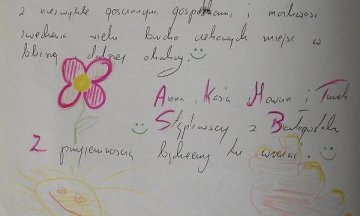 z niezwykle gościnnym gospodarzami i możliwość
zwiedzenia wielu bardzo ciekawych miejsc w
bliższej i dalszej okolicy.
Anna, Kasia, Marian i
z Białegostoku
Z przyjemnością będziemy tu wracać.